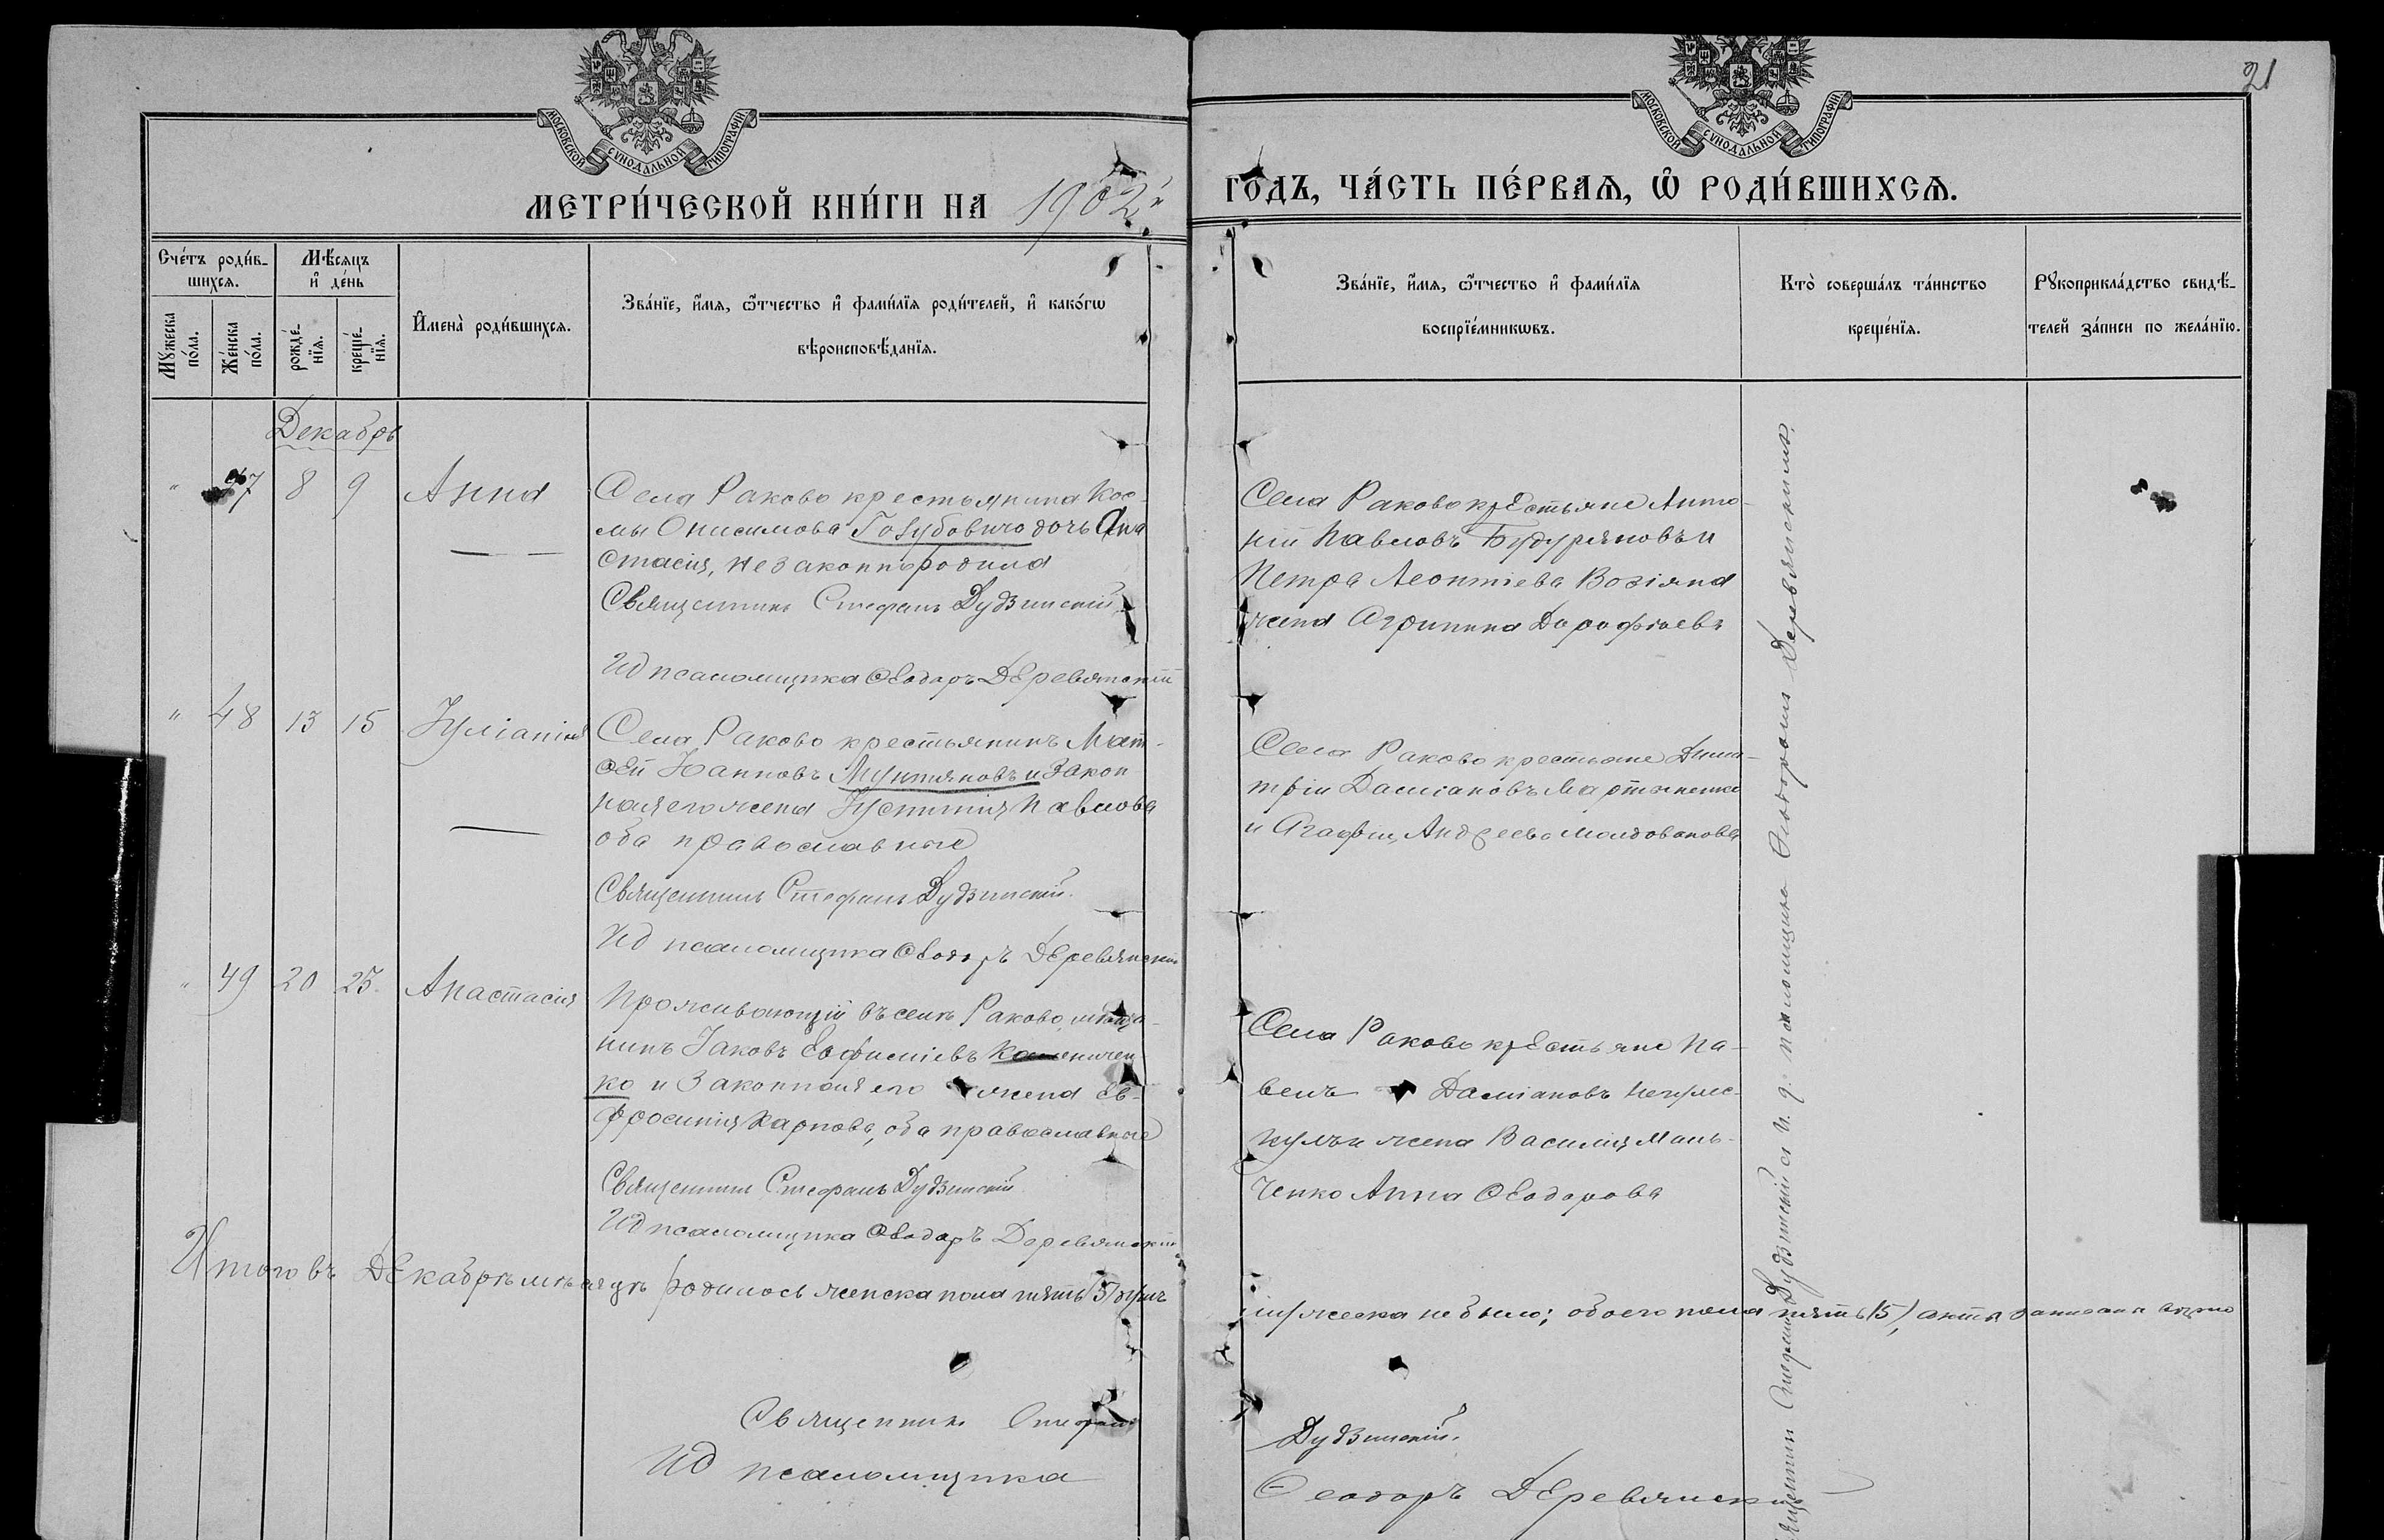 21
МОСКОВСКОЙ СѴНОДАЛЬНОЙ ТИПОГРАФІИ
МОСКОВСКОЙ СѴНОДАЛЬНОЙ ТИПОГРАФІИ
МЕТРИ́ЧЕСКОЙ КНИ́ГИ НА 1902й
ГОДЪ, ЧА́СТЬ ПЕ́РВАѦ, Ѡ҆ РОДИ́ВШИХСѦ.
Сче́тъ роди́в-
шихсѧ.
Мꙋ́жеска
по́ла.
Же́нска
по́ла.
Мѣ́сѧцъ
и҆ де́нь
рожде́-
нїѧ.
креще́-
нїѧ.
И҆мена̀ роди́вшихсѧ.
Зва́нїе, и҆́мѧ, ѻ҆́тчество и҆ фами́лїѧ роди́телей, и҆ како́гѡ
вѣроисповѣ́данїѧ.
Зва́нїе, и҆́мѧ, ѻ҆́тчество и҆ фами́лїѧ
воспрїе́мникѡвъ.
Кто̀ соверша́лъ та́инство
креще́нїѧ.
Рꙋкоприкла́дство свидѣ́-
телей за́писи по жела́нїю.
Декабрь
" 47 8 9 Анна
Села Раково крестьянина Кос-
мы Онисимова Голубовича дочь Ана
стасія, незаконнородила
Священникъ Стефанъ Дудзинскій
ИД псаломщика Ѳеодоръ Деревянскій
Села Раково крестьяне Анто-
ній Павловъ Будуряновъ и
Петра Леонтіева Возіяна
жена Агрипина Дорофѣева
" 48 13 15 Іуліанія
Села Раково крестьянинъ Мат-
ѳей Іоанновъ Мунтяновъ и закон
ная его жена Іустинія Павлова
оба православные
Священникъ Стефанъ Дудзинскій.
ИД псаломщика Ѳеодоръ Деревянскій
Села Раково крестьяне Дими-
трій Даміановъ Мартыненко
и Агафія Андреева Молдованова
" 49 20 25 Анастасія
Проживающій въ селѣ Раково, мѣща-
нинъ Іаковъ Евфиміевъ
ко и законная его жена Ев-
фросинія Карпова, оба православные
Священникъ Стефанъ Дудзинскій
ИД псаломщика Ѳеодоръ Деревянскій
Села Раково крестьяне Па-
велъ Даміановъ
и жена Василія Мань-
ченко Анна Ѳеодорова
Священникъ Стефанъ Дудзинскій съ и. д. псаломщика Ѳеодоромъ Деревянскимъ.
Итого въ Декабрѣ мѣсяцѣ родилось женска пола пять (5) душъ
мужеска не было; обоего пола пять (5), акты записаны вѣрно
Священникъ Стефанъ
Дудзинскій.
ИД псаломщика
Ѳеодоръ Деревянскій